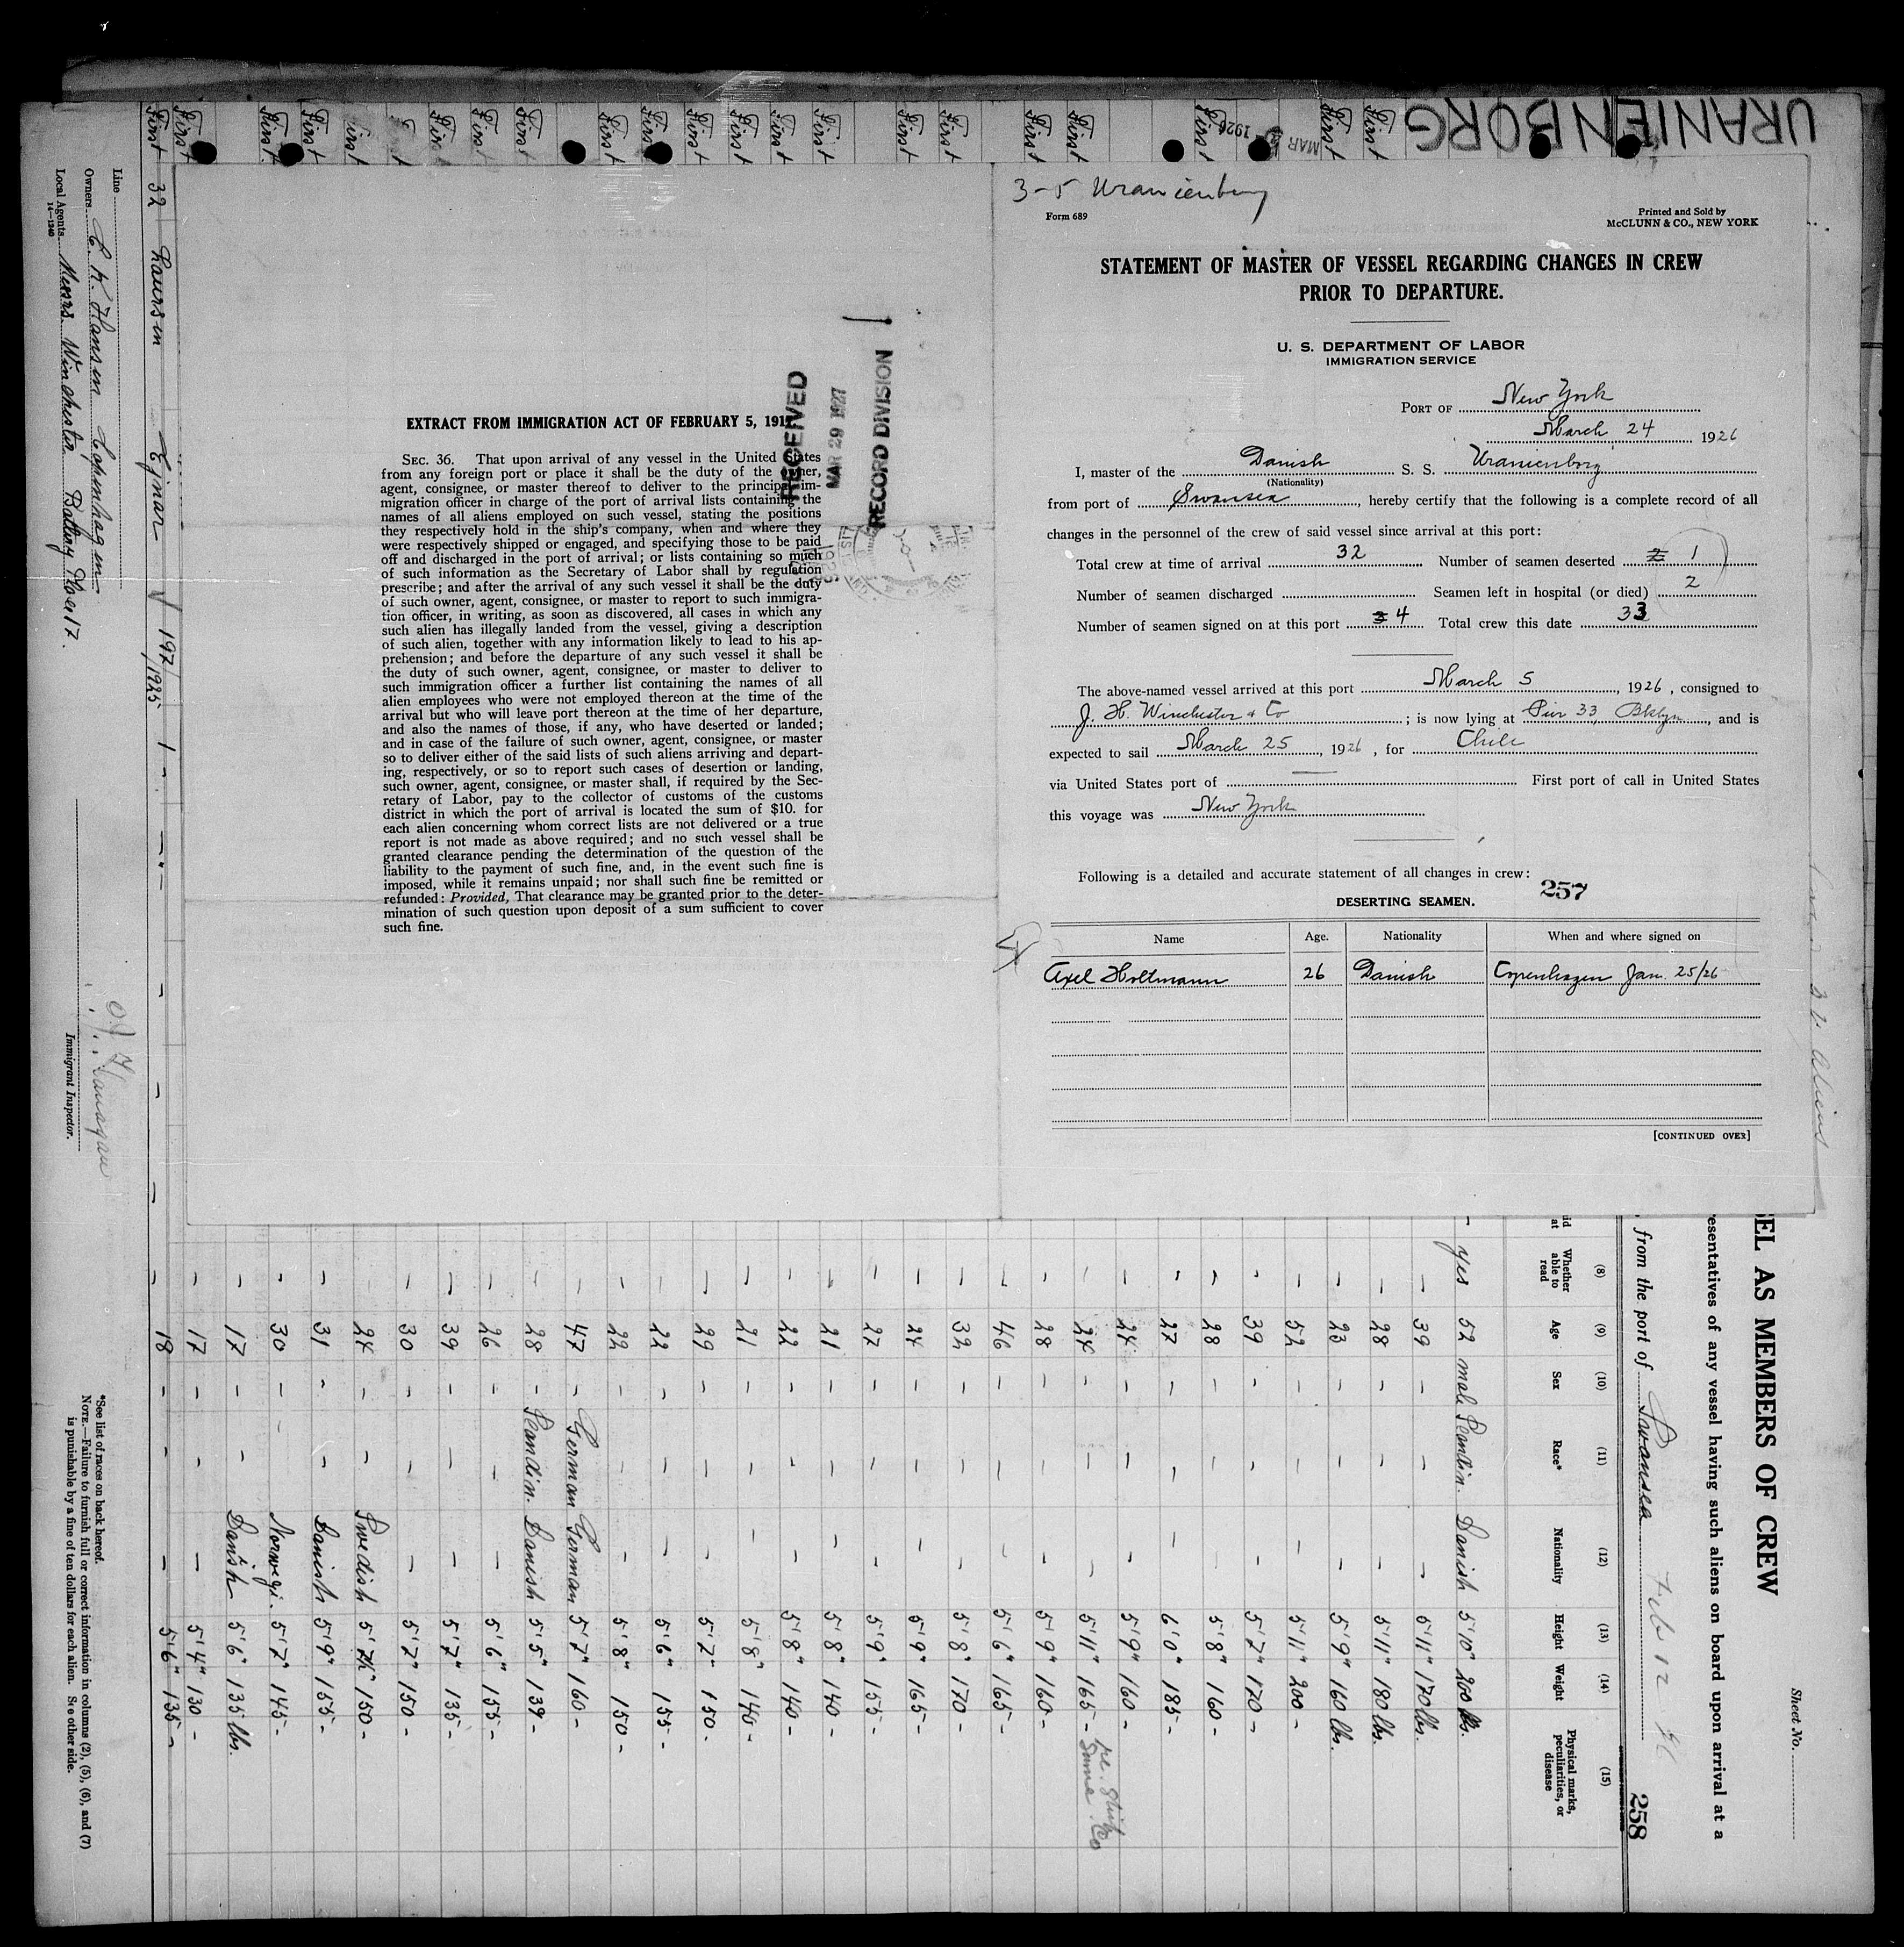 URANIENBORG
3-5 Uranienburg
Form 689
Printed and Sold by
McCLUNN & CO., NEW YORK
STATEMENT OF MASTER OF VESSEL REGARDING CHANGES IN CREW
PRIOR TO DEPARTURE.
U. S. DEPARTMENT OF LABOR
IMMIGRATION SERVICE
PORT OF New York
March 24 1926
I, master of the Danish S. S. Uranienborg
(Nationality)
from port of Swansea, hereby certify that the following is a complete record of all
changes in the personnel of the crew of said vessel since arrival at this port:
Total crew at time of arrival 32 Number of seamen deserted 2 1
Number of seamen discharged Seamen left in hospital (or died) 2
Number of seamen signed on at this port 4 Total crew this date 33
The above-named vessel arrived at this port March 5, 1926, consigned to
J. H. Winchester & Co; is now lying at Pier 33 Bklyn, and is
expected to sail March 25, 1926, for Chile
via United States port of — First port of call in United States
this voyage was New York
Following is a detailed and accurate statement of all changes in crew:
257
DESERTING SEAMEN.
Name Age. Nationality When and where signed on
Axel Holtmann 26 Danish Copenhagen Jan. 25/26
[CONTINUED OVER]
EXTRACT FROM IMMIGRATION ACT OF FEBRUARY 5, 1917.
SEC. 36. That upon arrival of any vessel in the United States
from any foreign port or place it shall be the duty of the owner,
agent, consignee, or master thereof to deliver to the principal im-
migration officer in charge of the port of arrival lists containing the
names of all aliens employed on such vessel, stating the positions
they respectively hold in the ship's company, when and where they
were respectively shipped or engaged, and specifying those to be paid
off and discharged in the port of arrival; or lists containing so much
of such information as the Secretary of Labor shall by regulation
prescribe; and after the arrival of any such vessel it shall be the duty
of such owner, agent, consignee, or master to report to such immigra-
tion officer, in writing, as soon as discovered, all cases in which any
such alien has illegally landed from the vessel, giving a description
of such alien, together with any information likely to lead to his ap-
prehension; and before the departure of any such vessel it shall be
the duty of such owner, agent, consignee, or master to deliver to
such immigration officer a further list containing the names of all
alien employees who were not employed thereon at the time of the
arrival but who will leave port thereon at the time of her departure,
and also the names of those, if any, who have deserted or landed;
and in case of the failure of such owner, agent, consignee, or master
so to deliver either of the said lists of such aliens arriving and depart-
ing, respectively, or so to report such cases of desertion or landing,
such owner, agent, consignee, or master shall, if required by the Sec-
retary of Labor, pay to the collector of customs of the customs
district in which the port of arrival is located the sum of $10. for
each alien concerning whom correct lists are not delivered or a true
report is not made as above required; and no such vessel shall be
granted clearance pending the determination of the question of the
liability to the payment of such fine, and, in the event such fine is
imposed, while it remains unpaid; nor shall such fine be remitted or
refunded: Provided, That clearance may be granted prior to the deter-
mination of such question upon deposit of a sum sufficient to cover
such fine.
RECEIVED
MAR 29 1927
RECORD DIVISION
Sheet No.
SEL AS MEMBERS OF CREW
resentatives of any vessel having such aliens on board upon arrival at a
from the port of Swansea Feb 12
258
(8) (9) (10) (11) (12) (13) (14) (15)
Whether able to read Age Sex Race* Nationality Height Weight Physical marks, peculiarities, or disease
yes 52 male Scandin. Danish 5'10" 200 lbs.
- 39 - - - 5'11" 170 lbs.
- 28 - - - 5'11" 180 lbs.
- 23 - - - 5'9" 160 lbs.
- 52 - - - 5'11" 200 -
- 39 - - - 5'7" 170 -
- 28 - - - 5'8" 160 -
- 27 - - - 6'0" 185 -
- 24 - - - 5'9" 160 -
- 24 - - - 5'11" 165 -
- 28 - - - 5'9" 160 -
- 46 - - - 5'6" 165 -
- 32 - - - 5'8" 170 -
- 24 - - - 5'9" 165 -
- 27 - - - 5'9" 155 -
- 21 - - - 5'8" 140 -
- 22 - - - 5'8" 140 -
- 21 - - - 5'8" 140 -
- 29 - - - 5'7" 150 -
- 22 - - - 5'6" 155 -
- 22 - - - 5'8" 150 -
- 47 - German German 5'7" 160 -
- 28 - Scandin. Danish 5'5" 139 -
- 26 - - - 5'6" 155 -
- 39 - - - 5'7" 135 -
- 30 - - - 5'7" 150 -
- 24 - - Swedish 5'7½" 150 -
- 31 - - Danish 5'9" 155 -
- 30 - - Norwegi. 5'7" 145 -
- 17 - - Danish 5'6" 135 lbs.
- 17 - - - 5'4" 130 -
- 18 - - - 5'6" 135 -
First 32 Laursen Ejnar 14/2 1925 1 - -"-
Line
Owners C. K. Hansen Copenhagen
Local Agents Messrs. Winchester Battery Place 17.
14-1240
Immigrant Inspector.
*See list of races on back hereof.
NOTE.—Failure to furnish full or correct information in columns (2), (5), (6), and (7)
is punishable by a fine of ten dollars for each alien. See other side.